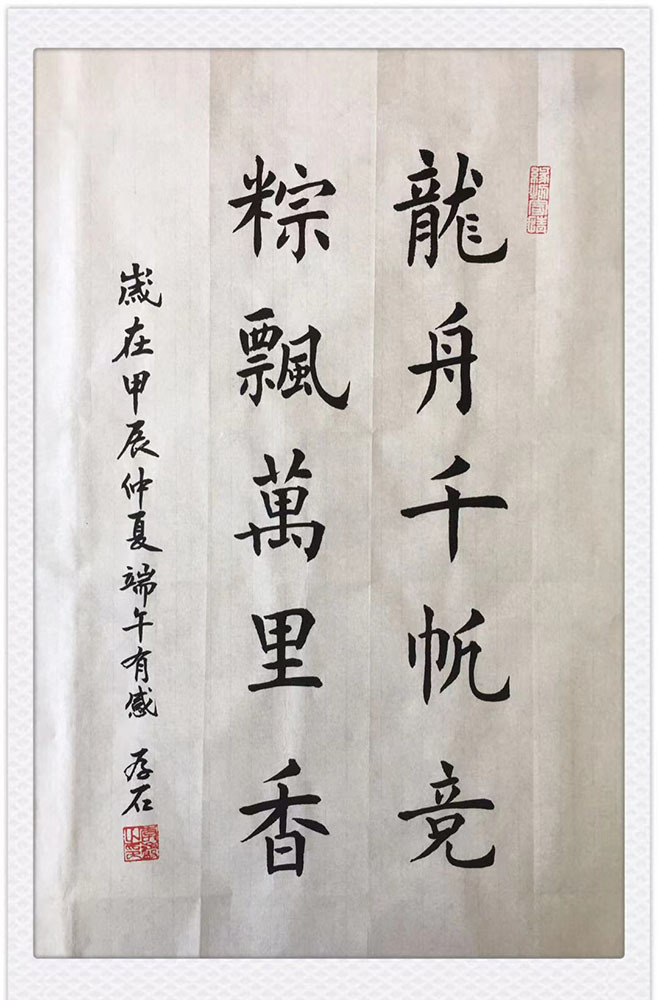 龍舟千帆竞
粽飄萬里香
歲在甲辰仲夏端午有感 存石